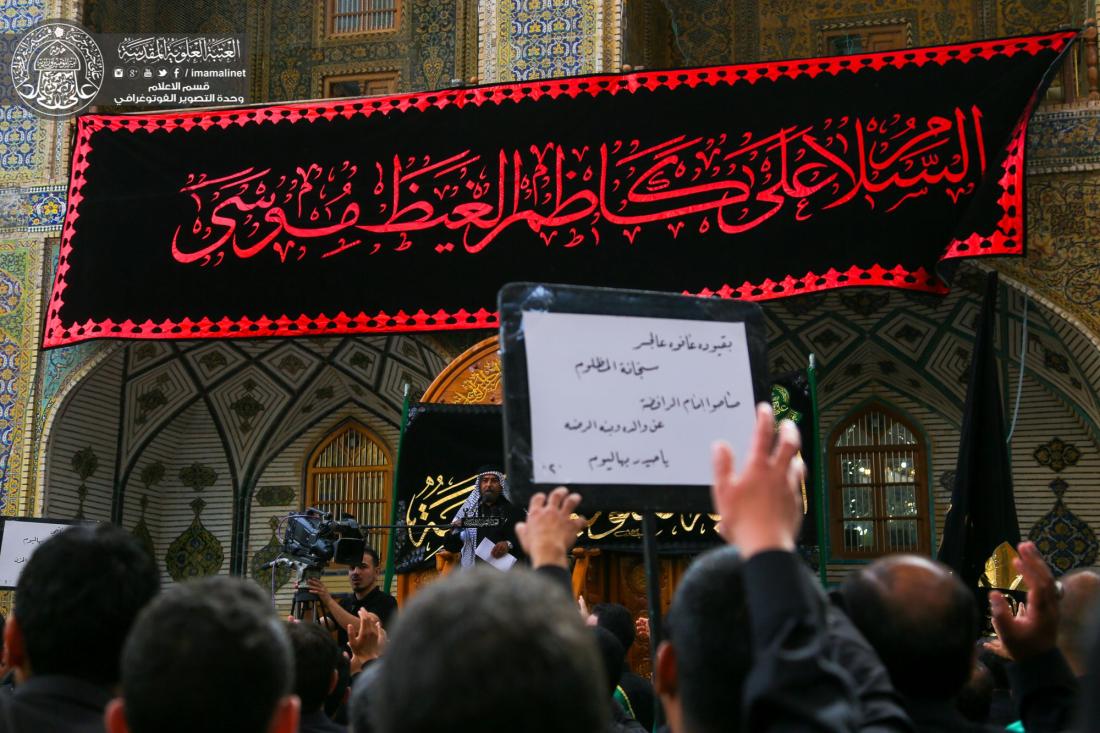 العتبة العلوية المقدسة
/ imamalinet
قسم الاعلام
وحدة التصوير الفوتوغرافي
السَّلامُ عَلى كاظِمِ الغَيْظِ مُوسَى
بقيوده عافوه عالجسر
سجانة المظلوم
صاحوا إمام الرافضة
عن والده وبنه الرضه
يا حيدر بهاليوم